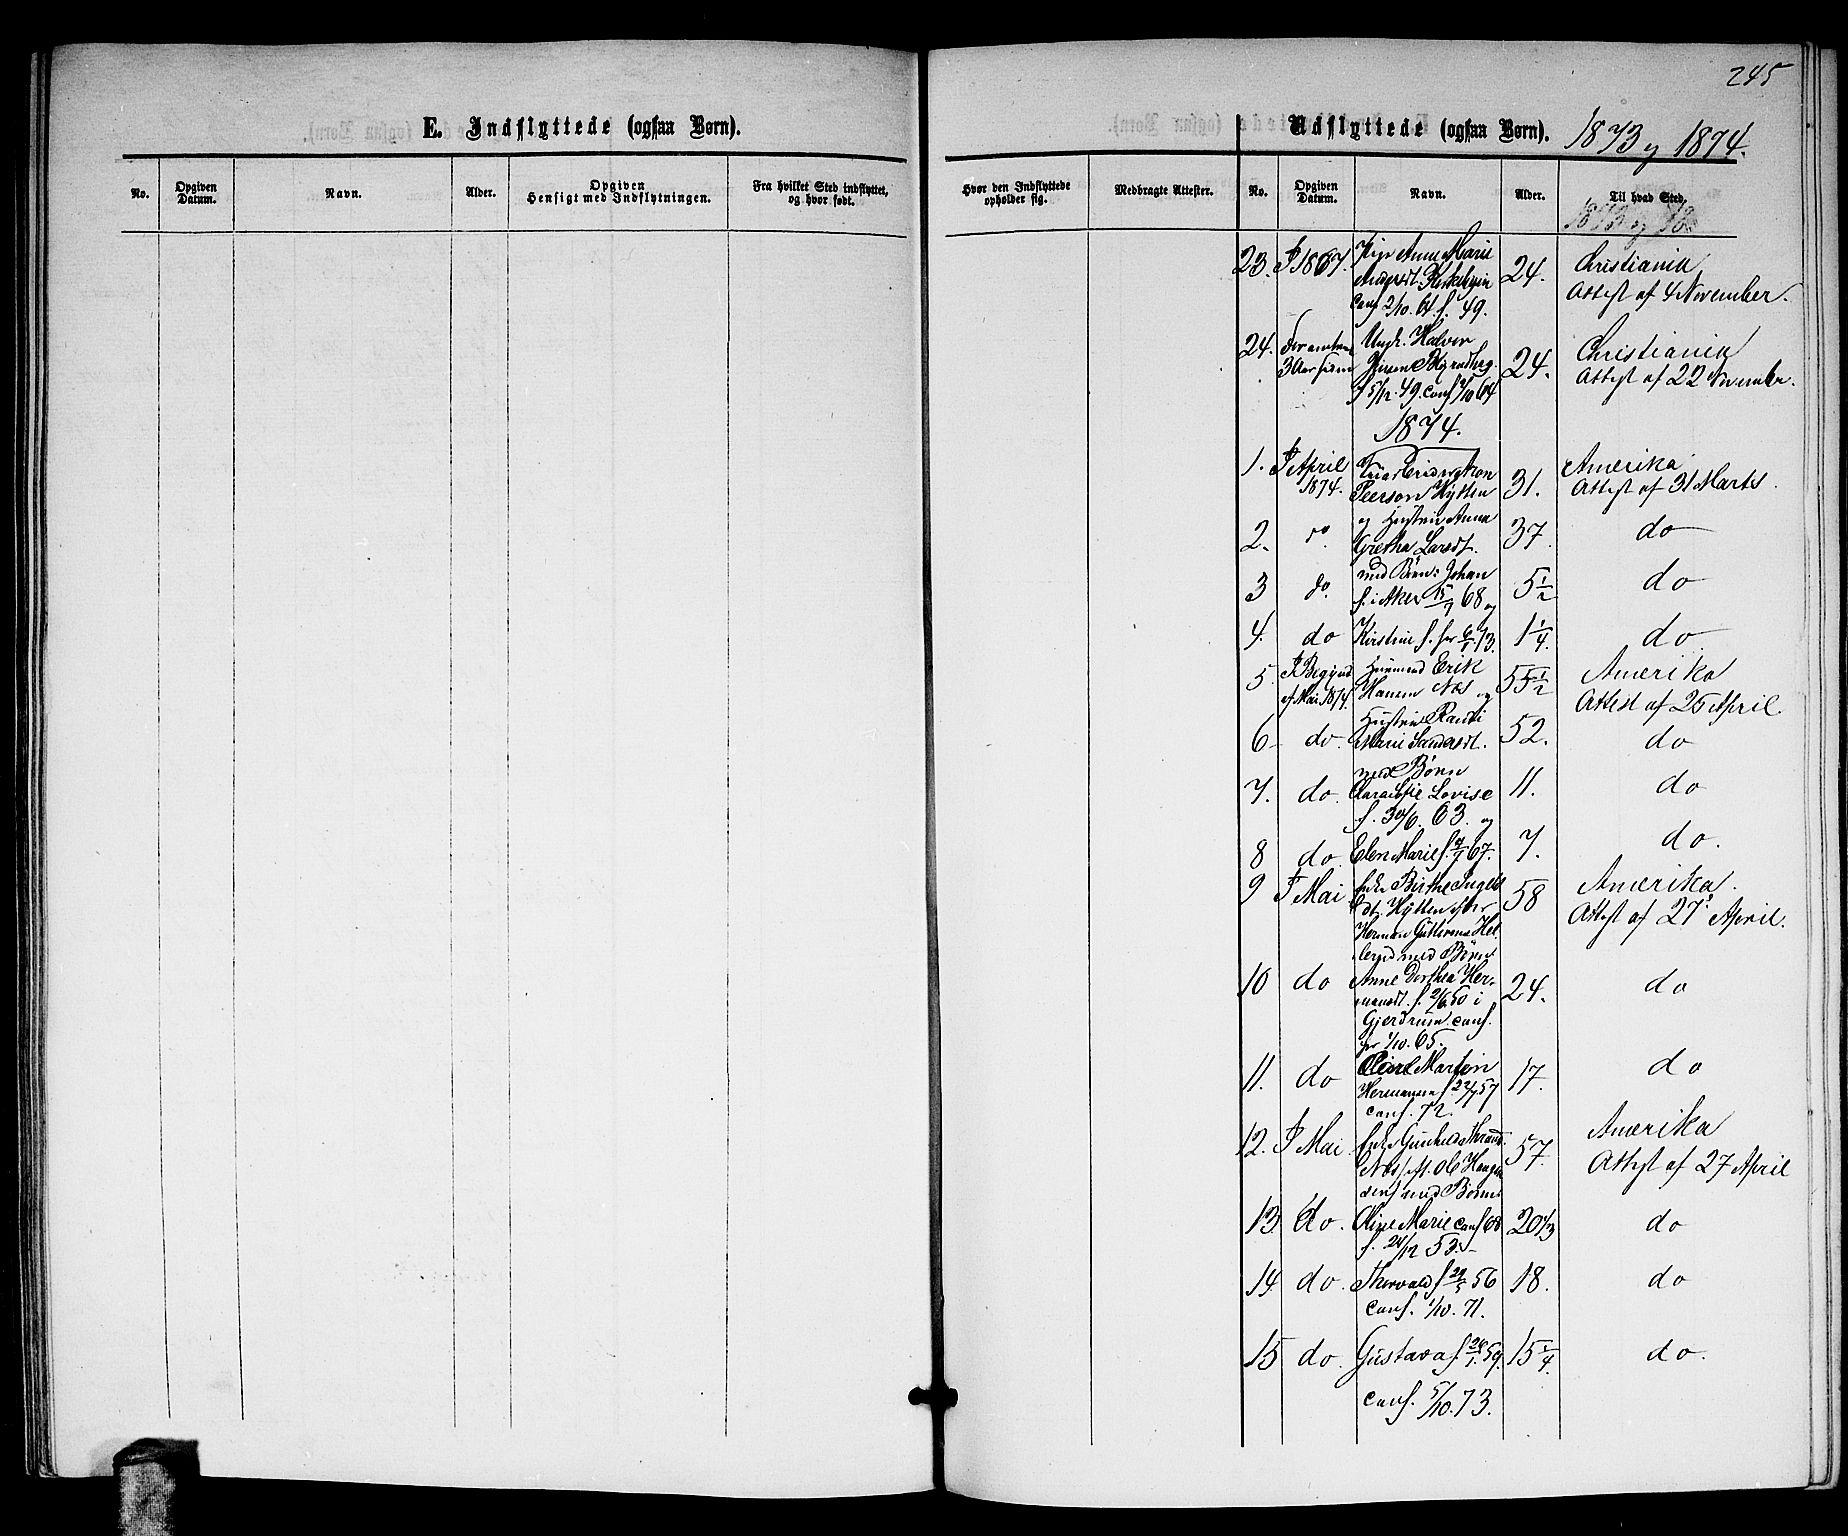 245
E. Indflyttede (ogsaa Børn).
No.
Opgiven Datum.
Navn.
Alder.
Opgiven Hensigt med Indflytningen.
Fra hvilket Sted indflyttet, og hvor født.
Hvor den Indflyttede opholder sig.
Medbragte Attester.
Udflyttede (ogsaa Børn). 1873 og 1874.
No.
Opgiven Datum.
Navn.
Alder.
Til hvad Sted.
23. I 1867. Pige Anne Marie 24. Christiania
Andersdt.
conf 2/10. 64. f. 49. Attest af 4 November.
24. for omtrent Ungk. Halvor 24. Christiania
3 Aar siden
f 5/12. 49. conf 2/10 64 Attest af 22 November.
1874.
1. I April 31. Amerika
1874. Peerson Hytten Attest af 31 Marts.
2. do. og Hustru Anne 37. do
Grethe Larsdt.
3 do. med Børn: Johan 5 1/2 do
f. i Aker 68 og
4. do Kirstine f. 73. 1 1/4. do
5. I Begynd. Huusmand Erik 55 1/2 Amerika
af Mai 1874. Hansen Næs og Attest af 25 April
6 do. Hustru Randi 52. do
Marie
7. do. med Børn 11. do
Lovise
f. 30/6. 63. og
8 do. Elen Marie f. 67. 7. do.
9 I Mai Enke Birthe 58 Amerika.
dt. Hytten efter Attest af 27 April.
Herman
med Børn
10 do Anne Dorthea Her- 24. do
mansdt. f. 2/6 50 i
Gjerdrum conf.
1/10. 65.
11. do Carl Martin 17. do
Hermansen f 57
conf. 72.
12. I Mai. Enke Gunhild 57. Amerika
Næs Attest af 27 April
med Børn
13. do. Oline Marie conf 68 20 1/3 do
f. 24/12 53.
14. do. Thorvald f 56 18. do
conf. 1/10. 71.
15 do. Gustava f. 59. 15 1/4. do.
conf. 5/10. 73.